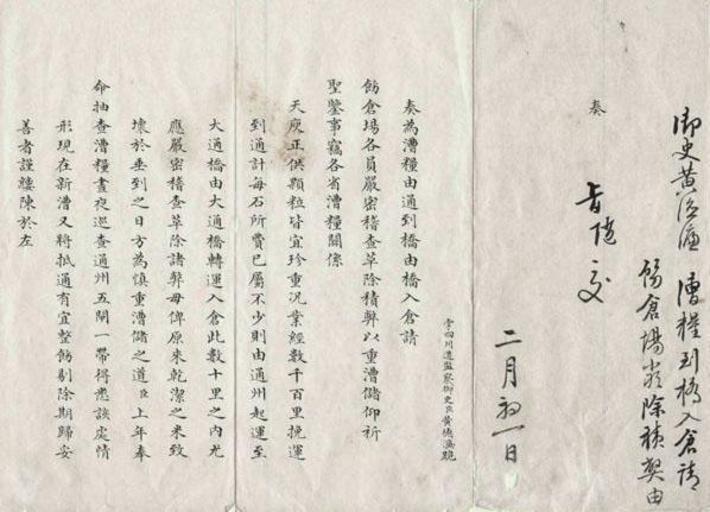 御史黃德濂 漕糧到橋入倉請
飭倉場嚴除積弊由
奏
旨隨交
二月初一日
掌四川道監察御史臣黃德濂跪
奏為漕糧由通到橋由橋入倉請
飭倉場各員嚴密稽查革除積弊以重漕儲仰祈
聖鑒事竊各省漕糧關係
天庾正供顆粒皆宜珍重況業經數千百里挽運
到通計每石所費已屬不少則由通州起運至
大通橋由大通橋轉運入倉此數十里之內尤
應嚴密稽查革除諸弊毋俾原來乾潔之米致
壞於垂到之日方為慎重漕儲之道臣上年奉
命抽查漕糧晝夜巡查通州五閘一帶得悉該處情
形現在新漕又將抵通有宜整飭剔除期歸妥
善者謹縷陳於左